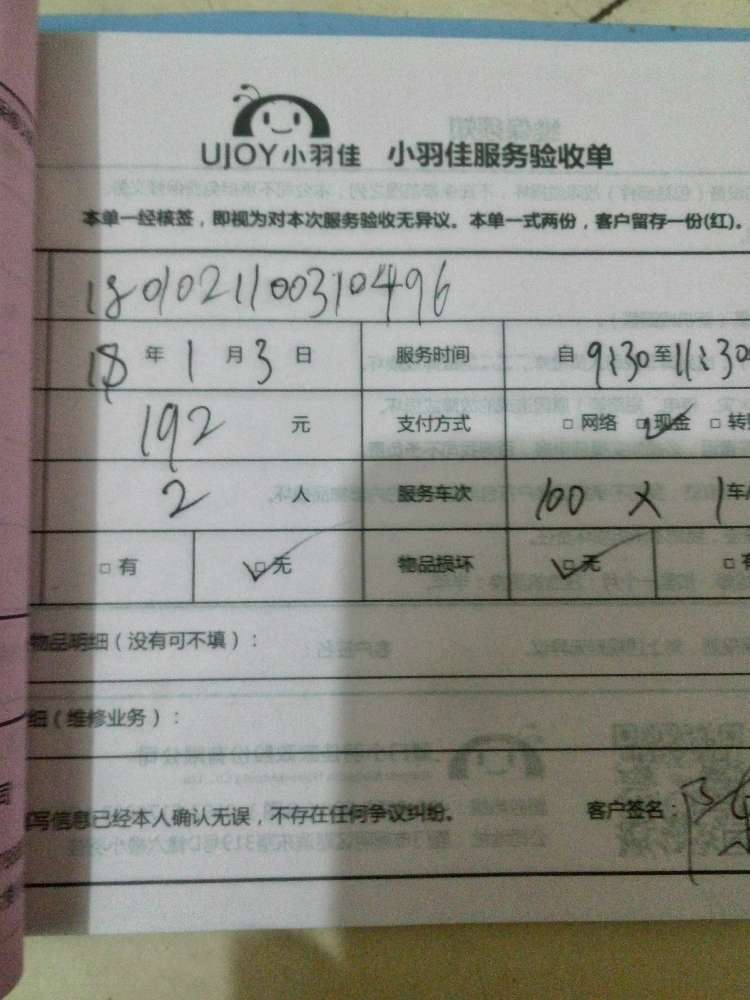 UJOY小羽佳 小羽佳服务验收单
本单一经核签，即视为对本次服务验收无异议。本单一式两份，客户留存一份(红)。
1801021100310496
18年1月3日 服务时间 自9:30至11:30
192元 支付方式 □网络 ☑现金 □转
2人 服务车次 100 × 1车
□有 ☑无 物品损坏 ☑无 □有
物品明细（没有可不填）：
细（维修业务）：
写信息已经本人确认无误，不存在任何争议纠纷。 客户签名：